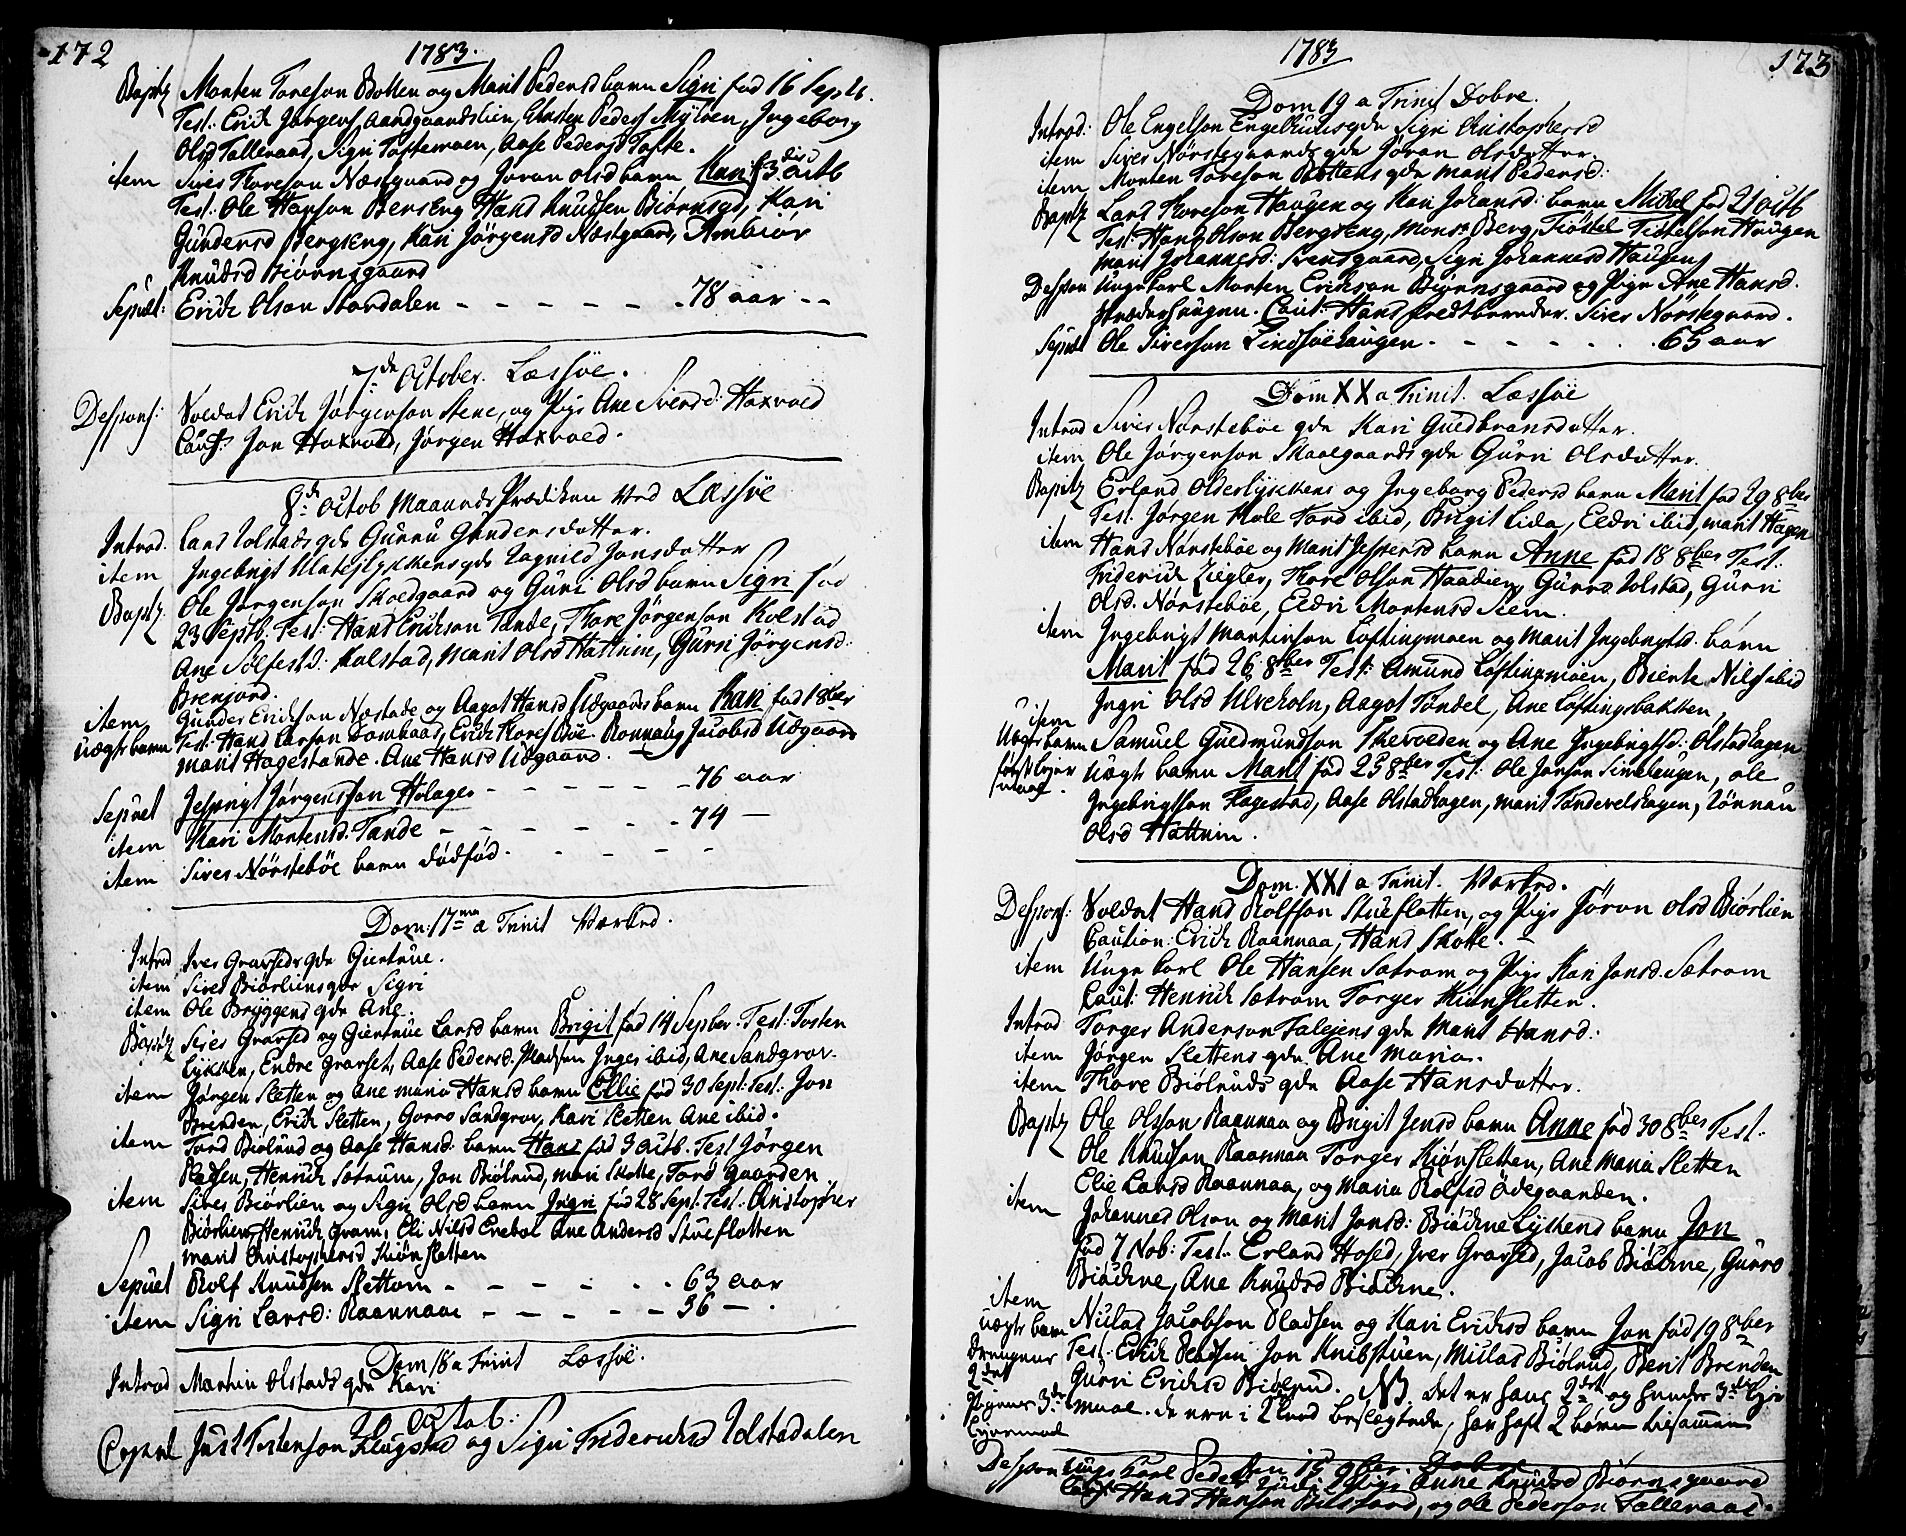 172
1783.
Baptz Morten Toreson Botten og Marit Pedersd barn Sigri fød 16 Septb.
Test: Erich Jørgens Aandgaardslien, Christen Peders Mylren, Ingeborg
Olsd Talleraas, Sigri Toftemoen, Aase Pedersd Tofte.
item Siver Thoreson Næstgaard og Joran Olsd barn Kari f 3die Octb
Test: Ole Hanson Bergseng Hans Knudsen Biørnsgd, Kari
Gundersd Bergseng, Kari Jørgensd Næstgaard, Ambiør
Knudsd Biørnsgaard
Sepult: Erich Olson Stordalen - - - - - - - 78 aar --
7de October. Læssøe.
Despons: Soldat Erich Jørgenson Stene, og Pige Ane Siversd: Hoxroed
Caut: Jon Hoxroed, Jørgen Hoxroed.
8de Octob Maaneds Prædiken ved Læssøe
Introd. Lars Tolstads qde Gurru Gundersdatter.
item Ingebrigt Slateslykkens qde Ragnild Jonsdatter
Baptz Ole Jørgenson Skoedgaard og Guri Olsd barn Sigri fød
23 Septb. Test: Hans Erichson Tande, Thore Jørgenson Kolstad
Ane Solfestd: Kolstad, Marit Olsd Hattrem, Gurri Jørgensd:
Brenjord.
item Gunder Erichson Næstade og Aagot Hansd Udgaards barn Kari fød 18ber
uægte barn Test: Hans Larson Dombaas, Erich Thores Bøe Ronnaug Jacobsd Udgaard
Marit Hagestande. Ane Hansd Udgaard.
Sepult Jesprigt Jørgensson Holager - - - - - 76 aar
item Kari Mortensd. Tande - - - - - - 74 -
item Siver Nørstebøe barn dødfød.
Dom: 17ma a Trinit Værket.
Introd Iver Gravseds qde Giertrue.
item Siver Biørliens qde Sigri
item Ole Bryggens qde Ane
Baptz Siver Gravsed og Giertrue Larsd barn Brigit fød 14 Sepber. Test: Tosten
Lykken, Endre Gravset, Aase Pedersd: Pladsen Inger ibid, Ane Sandgrov.
item Jørgen Sletten og Ane Maria Hansd barn Ellie fød 30 Sept: Test: Jon
Brenden, Erich Sletten, Gorro Sandgrov, Kari Sletten Ane ibid.
item Tord Biølrud og Aase Hansd: barn Hans fød 3 Octb. Test Jørgen
Pladsen, Henrich Sætrum, Jon Biølrud, Mari Skotte, Tord Gaarden
item Siver Biørlien og Sigri Olsd barn Ingri fød 28 Sept. Test. Christopher
Biørlien, Henrich Gram, Eli Nilsd Enebøe Ane Andersd Stueflotten
Marit Christophersd Kiønsletten
Sepult Rolf Knudsen Slettom - - - - - - 63 aar
item Sigri Larsd: Raannaae - - - - - 36 - .
Dom 18 a Trinit Læssøe.
Introd Martin Olstads qde Kari
20 Octob:
Copul Just Tostenson Flugstad og Sigri Friderichsd Tolstadalen
1783
173
Dom 19 a Trinit Dobre.
Introd: Ole Engelson Engelhuus qde Sigri Christophersd
item Siver Nørstegaards qde Joran Olsdatter.
item Morten Toreson Bottens qde Marit Pedersd:
Baptz Lars Thoreson Haugen og Kari Johansd: barn Mikkel fød 21 Octb
Test: Hans Olson Bergseng, Mons Berg, Tiøstel Tiøstelson Haugen
Marit Johannesd: Svensgaard, Sigri Johannesd Haugen
Despon Unge Carl Morten Erichson Biørnsgaard og Pige Ane Hansd.
Skrederhaugen. Caut: Hans Siver Nørstegaard.
Sepult Ole Siverson Lindsøehaugen - - - - - - 65 aar
Dom XX a Trinit. Læssøe
Introd Siver Nørstebøe qde Kari Guldbransdatter.
item Ole Jørgenson Skaalgaards qde Gurri Olsdatter.
Baptz Erland Olderlykkens og Ingeborg Pedersd barn Marit fød 29 8ber
Test: Jørgen Hole Tord ibid, Brigit Lida, Eldri ibid, Marit Hagen
item Hans Nørstebøe og Marit Jespersd barn Anne fød 18 8ber Test:
Friderich Ziegler, Thore Olson Haadien, Gurro Tolstad, Gurri
Olsd. Nørstebøe, Eldri Mortensd Stem.
item Ingebrigt Martinson Loftingmoen og Marit Ingebrigtsd. barn
Marit fød 26 8ber Test: Amund Loftingmoen, Biente Nilss ibid
Ingri Olsd Ulveholn, Aagot Tøndel, Ane Loftingsbakken,
item Uægte barn Samuel Guldmundson Skervoeden og Ane Ingebrigtsd: Olstadhagen
første leyermaal. uægte barn Marit fød 25 8ber Test: Ole Jonson Simelengen, Ole
Ingebrigtson Flagestad, Aase Olstadhagen, Marit Tandevelhagen, Rønnau
Olsd Hattrem.
Dom. XXI a Trinit. Værket.
Despons: Soldat Hans Rolfson Stueflotten, og Pige Jøran Olsd Biørlien
Caution: Erich Raannaa, Hans Skotte.
item Unge Carl Ole Hansen Sætrom og Pige Kari Jonsd. Sætrom
Caut: Henrich Sætrom Torger Kiønsletten.
Introd Torger Anderson Falejens qde Marit Hansd:
item Jørgen Slettens qde Ane Maria.
item Thore Biølruds qde Aase Hansdatter.
Baptz Ole Olsson Raannaa og Brigit Jensd barn Anne fød 30 8ber Test:
Ole Knudson Raannaa Torger Kiønsletten, Ane Maria Sletten
Elie Larsd Raannaa, og Maria Rolfsd Ødegaarden.
item Johannes Olson og Marit Jonsd: Biørkne Lykkens barn Jon
fød 7 Nob: Test. Erland Hosed, Iver Gravsed, Jacob Biørkne, Gurro
Biørkne, Ane Knudsd Biørkne.
item uægte barn Niclas Jacobson Pladsen og Kari Erichsd barn Jon fød 19 8ber
Drengens 2det Test: Erich Pladsen Jon Knibstuen, Niclas Biølrud, Berit Brenden
Gurri Erichsd Biølrud. NB. det er hans 2det og hendes 3die leyer
Pigenes 3die Leyermaal maal. de ere i 2 leed beslegtede, har haft 2 børn tilsammen
Den 15 9ber. Dobre
Despon Unge Karl Peder og Pige Anne Knudsd Biørnsgaard
Caut: Hans Hanson Bilstad, og Ole Pederson Talleraas.